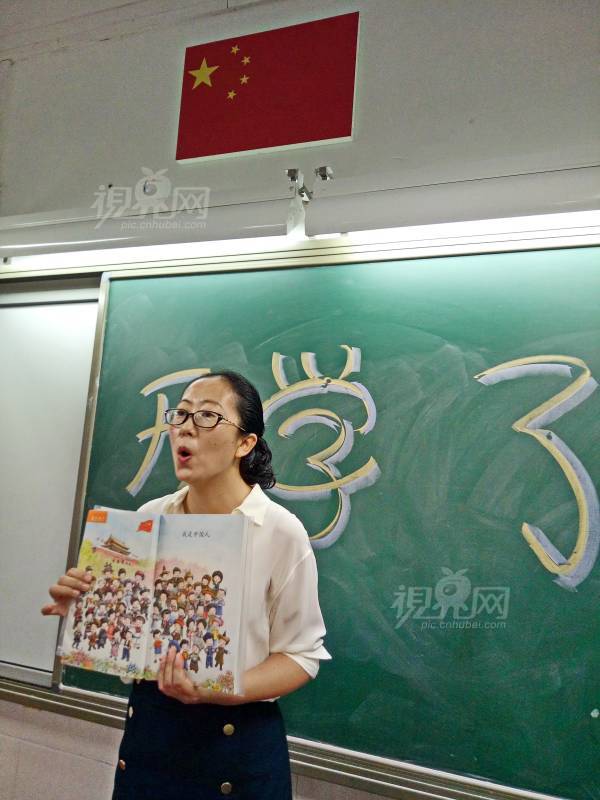 视界网
pic.cnhubei.com
开学了
我是中国人
视界网
pic.cnhubei.com